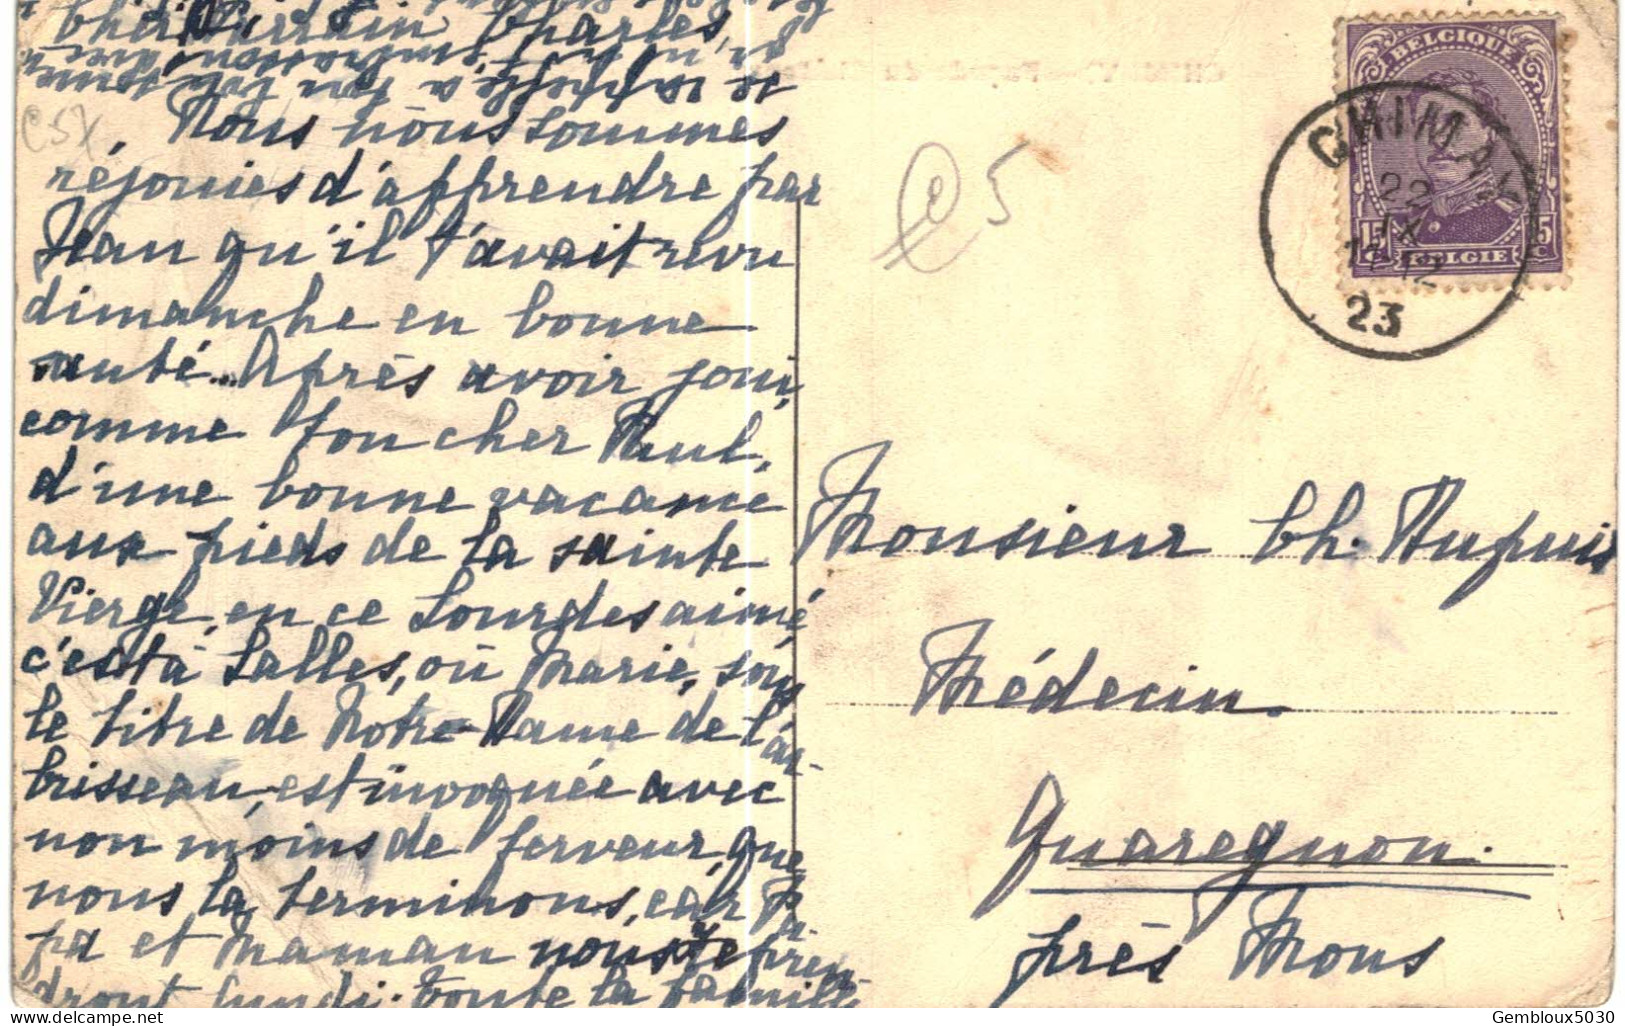 Cher Parrain Charles,
Nous nous sommes
réjouies d'apprendre par
Jean qu'il t'avait revu
dimanche en bonne
santé... Après avoir joui,
comme ton cher Paul,
d'une bonne vacance
aux pieds de la sainte
Vierge, en ce Lourdes aimé
c'est à Salles, où Marie, sous
le titre de Notre-Dame de l'ar-
brisseau, est invoquée avec
non moins de ferveur, que
nous la terminons, car Pa
pa et Maman nous repren-
dront lundi. Toute la famille
C5X
C5
BELGIQUE
15 15
C BELGIE C
CHIMAY
22
IX
12
23
Monsieur Ch. Dupuis
Médecin.
Quaregnon.
près Mons
Gembloux5030